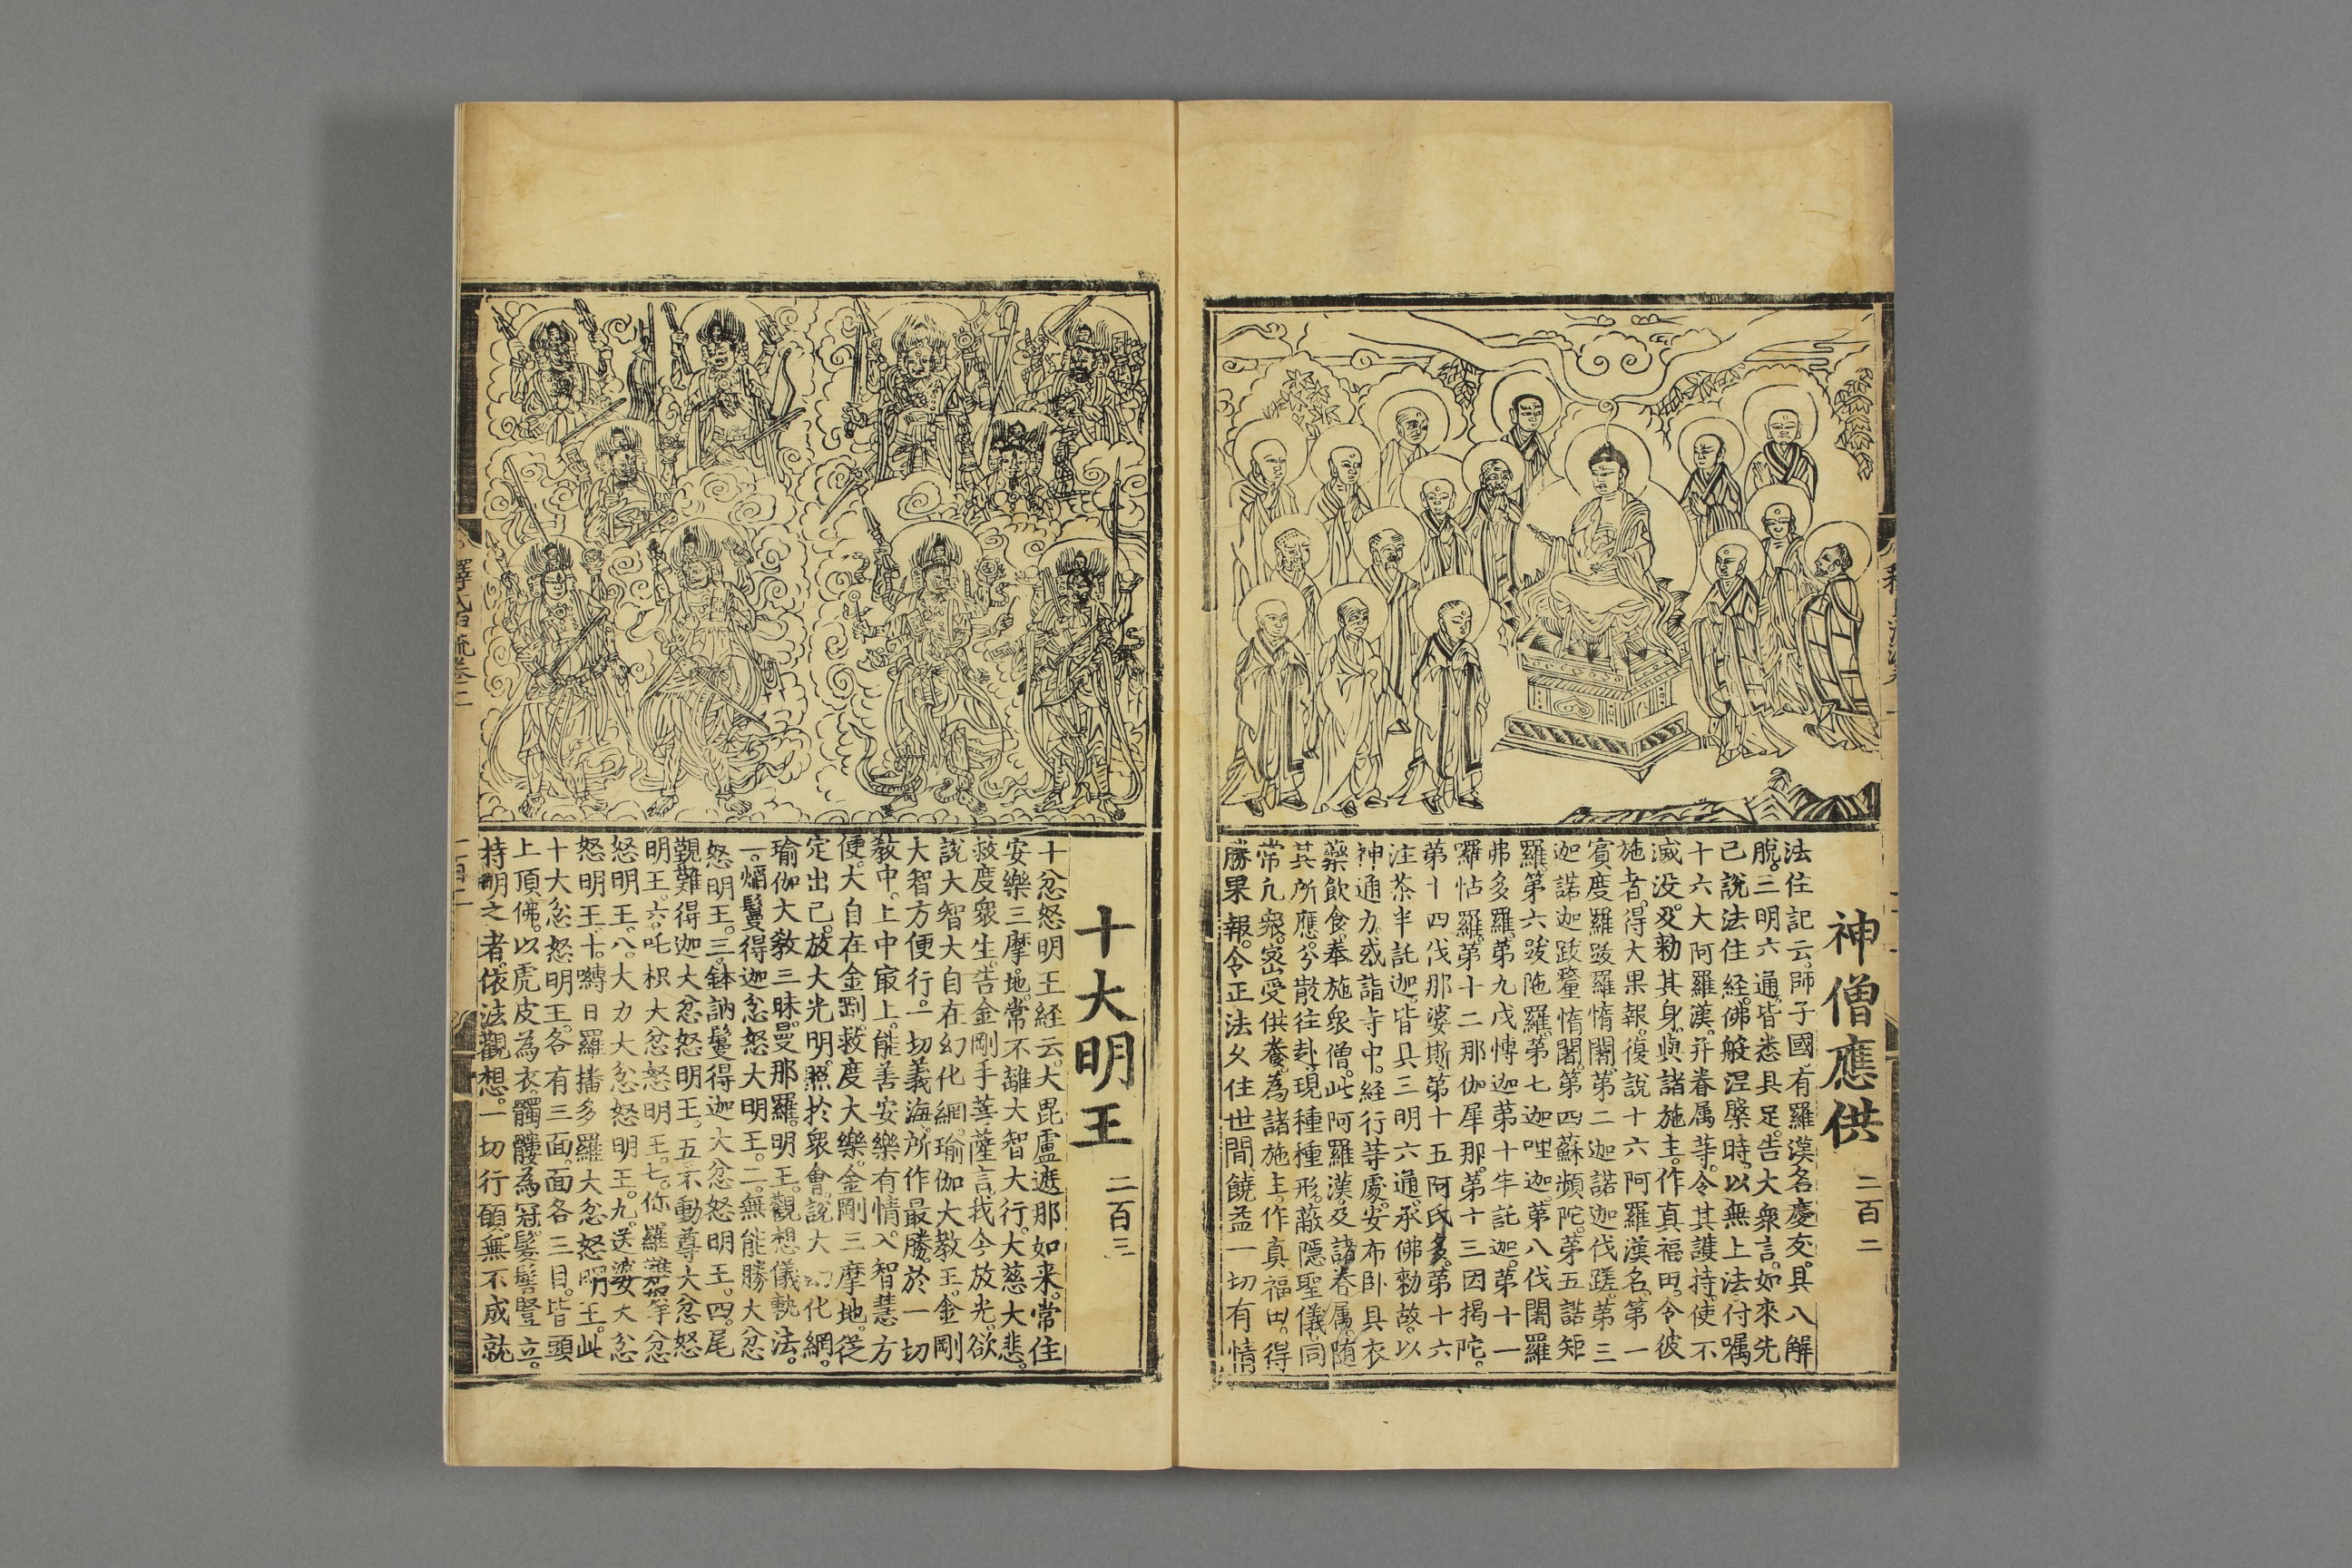 神僧應供 二百二
法住記云。師子國有羅漢名慶友。具八解
脫。三明六通。皆悉具足。告大衆言。如來先
已說法住經。佛般涅槃時。以無上法付囑
十六大阿羅漢。并眷属等。令其護持。使不
滅没。及勑其身。與諸施主。作真福田。令彼
施者。得大果報。復說十六阿羅漢名。第一
賓度羅跋羅惰闍。第二迦諾迦伐蹉。第三
迦諾迦跋釐惰闍。第四蘇頻陀。第五諾矩
羅。第六跋陁羅。第七迦哩迦。第八伐闍羅
弗多羅。第九戍愽迦。第十半託迦。第十一
囉怙羅。第十二那伽犀那。第十三因揭陀。
第十四伐那婆斯。第十五阿氏多。第十六
注茶半託迦。皆具三明六通。承佛勑故。以
神通力。或詣寺中。經行等處。安布卧具衣
藥飲食。奉施衆僧。此阿羅漢。及諸眷属。随
其所應。分散往赴。現種種形。蔽隱聖儀。同
常凢衆。宻受供養。為諸施主。作真福田。得
勝果報。令正法久住世間。饒益一切有情
十大明王 二百三
十忿怒明王経云。大毘盧遮那如来。常住
安樂三摩地。常不離大智大行。大慈大悲。
救度衆生。告金剛手菩薩言。我今放光。欲
說大智大自在幻化網。瑜伽大教王。金剛
大智方便行。一切義海。所作最勝。於一切
教中。上中冣上。能善安樂有情。入智慧方
便。大自在金剛。救度大樂。金剛三摩地。從
定出已。放大光明。照於衆會。說大幻化網。
瑜伽大教三昧。曼那羅。明王。觀想儀軌法。
一。焰鬘得迦忿怒大明王。二。無能勝大忿
怒明王。三。鉢訥鬘得迦大忿怒明王。四。尾
覲難得迦大忿怒明王。五。不動尊大忿怒
明王。六。吒枳大忿怒明王。七。你羅難拏大忿
怒明王。八。大力大忿怒明王。九。送婆大忿
怒明王。十。嚩日羅播多羅大忿怒明王。此
十大忿怒明王。各有三面。面各三目。皆頭
上頂佛。以虎皮為衣。髑髏為冠。髮髻竪立。
持明之者。依法觀想。一切行願。無不成就
釋氏源流卷二